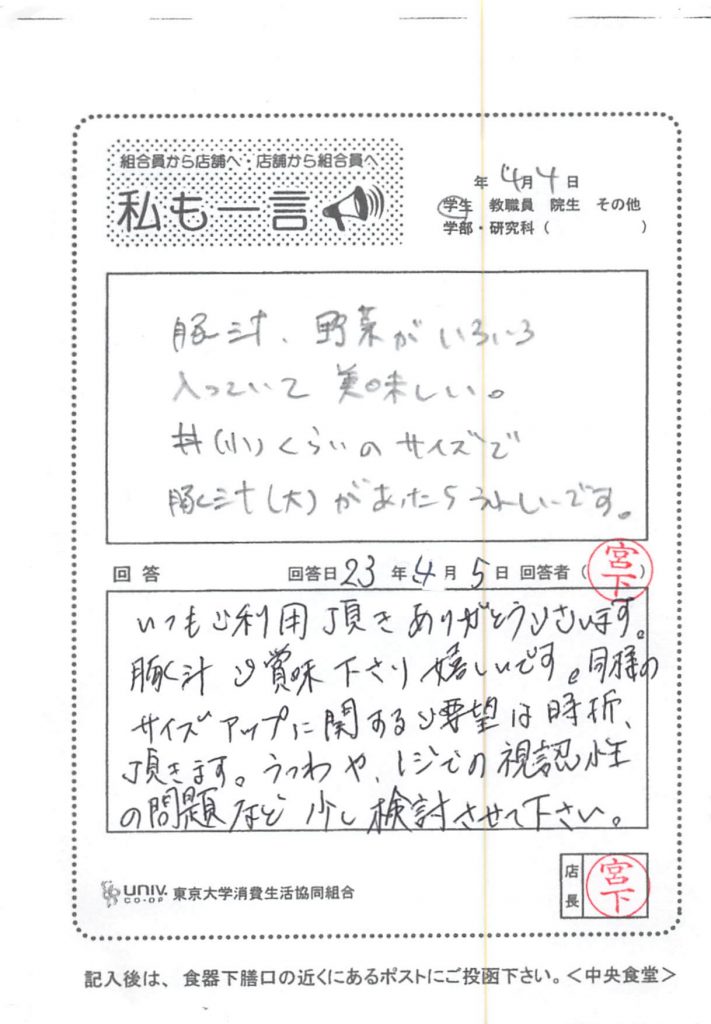 組合員から店舗へ・店舗から組合員へ
私も一言
年 4月4日
学生 教職員 院生 その他
学部・研究科（ ）
豚汁、野菜がいろいろ
入っていて美味しい。
丼(小)くらいのサイズで
豚汁(大)があったらうれしいです。
回答 回答日23年4月5日 回答者（宮下）
いつもご利用頂きありがとうございます。
豚汁ご賞味下さり嬉しいです。同様の
サイズアップに関するご要望は時折、
頂きます。うつわや、レジでの視認性
の問題など少し検討させて下さい。
UNIV. CO-OP 東京大学消費生活協同組合
店長 宮下
記入後は、食器下膳口の近くにあるポストにご投函下さい。＜中央食堂＞